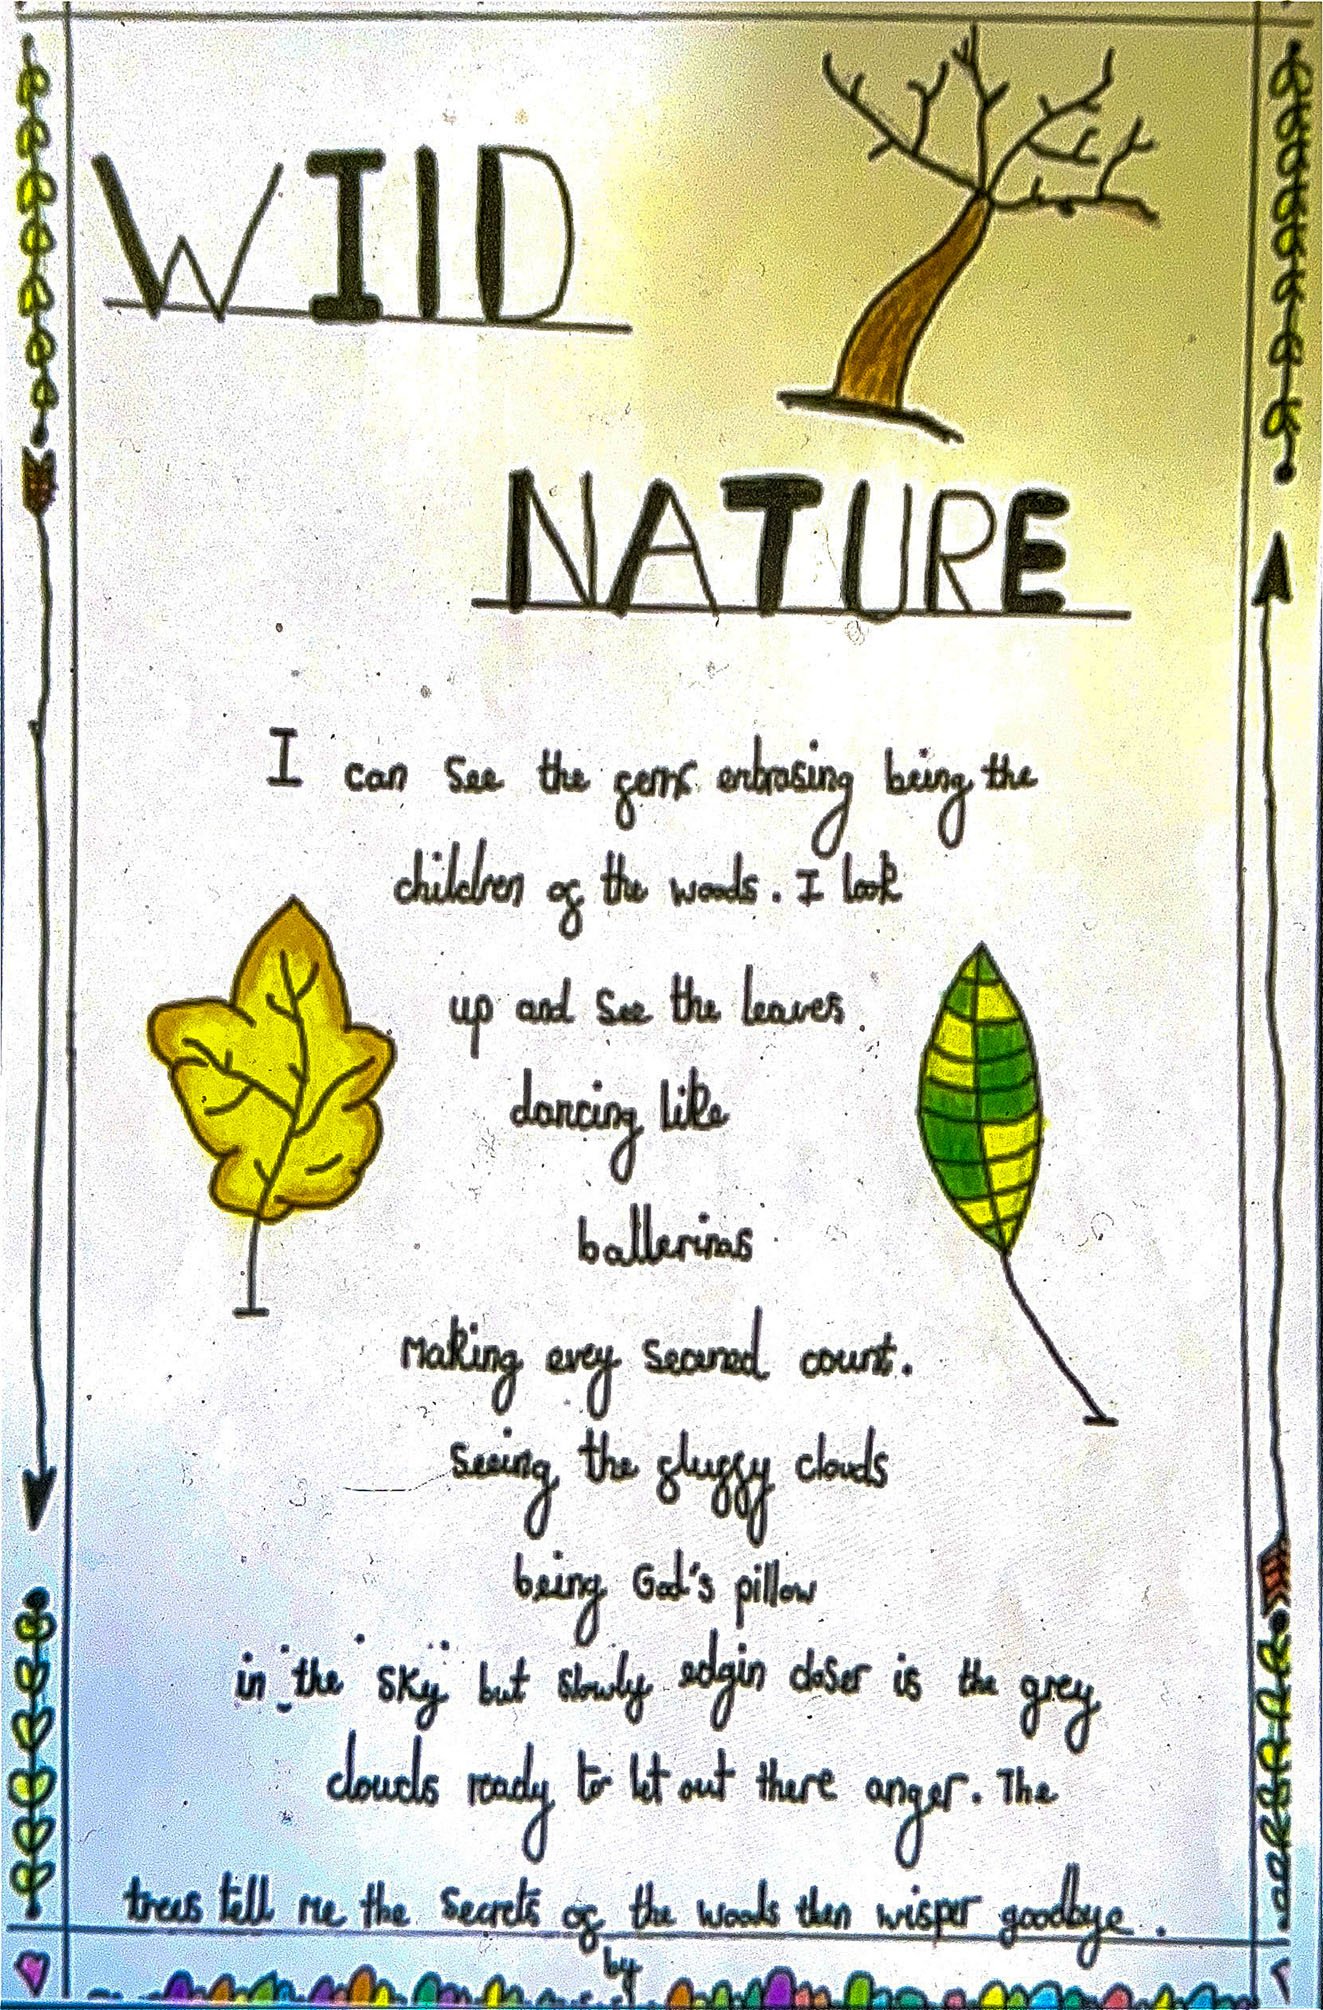 WIlD
NATURE
I can see the gems enbrasing being the
children of the woods. I look
up and see the leaves
dancing like
ballerinas
making evey secand count.
seeing the fluffy clouds
being God's pillow
in "the" sky but slowly edgin closer is the grey
clouds ready to let out there anger. The
trees tell me the secrets of the woods then wisper goodbye.
by